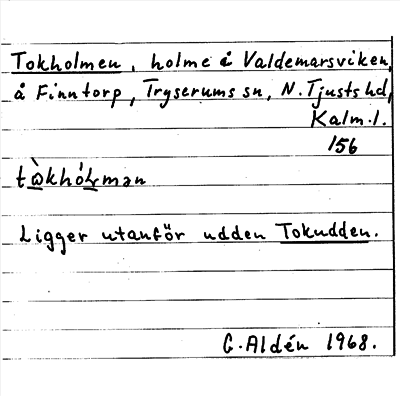 Tokholmen, holme i Valdemarsviken,
å Finntorp, Tryserums sn, N. Tjusts hd,
Kalm.l.
156
Ligger utanför udden Tokudden.
G. Aldén 1968.